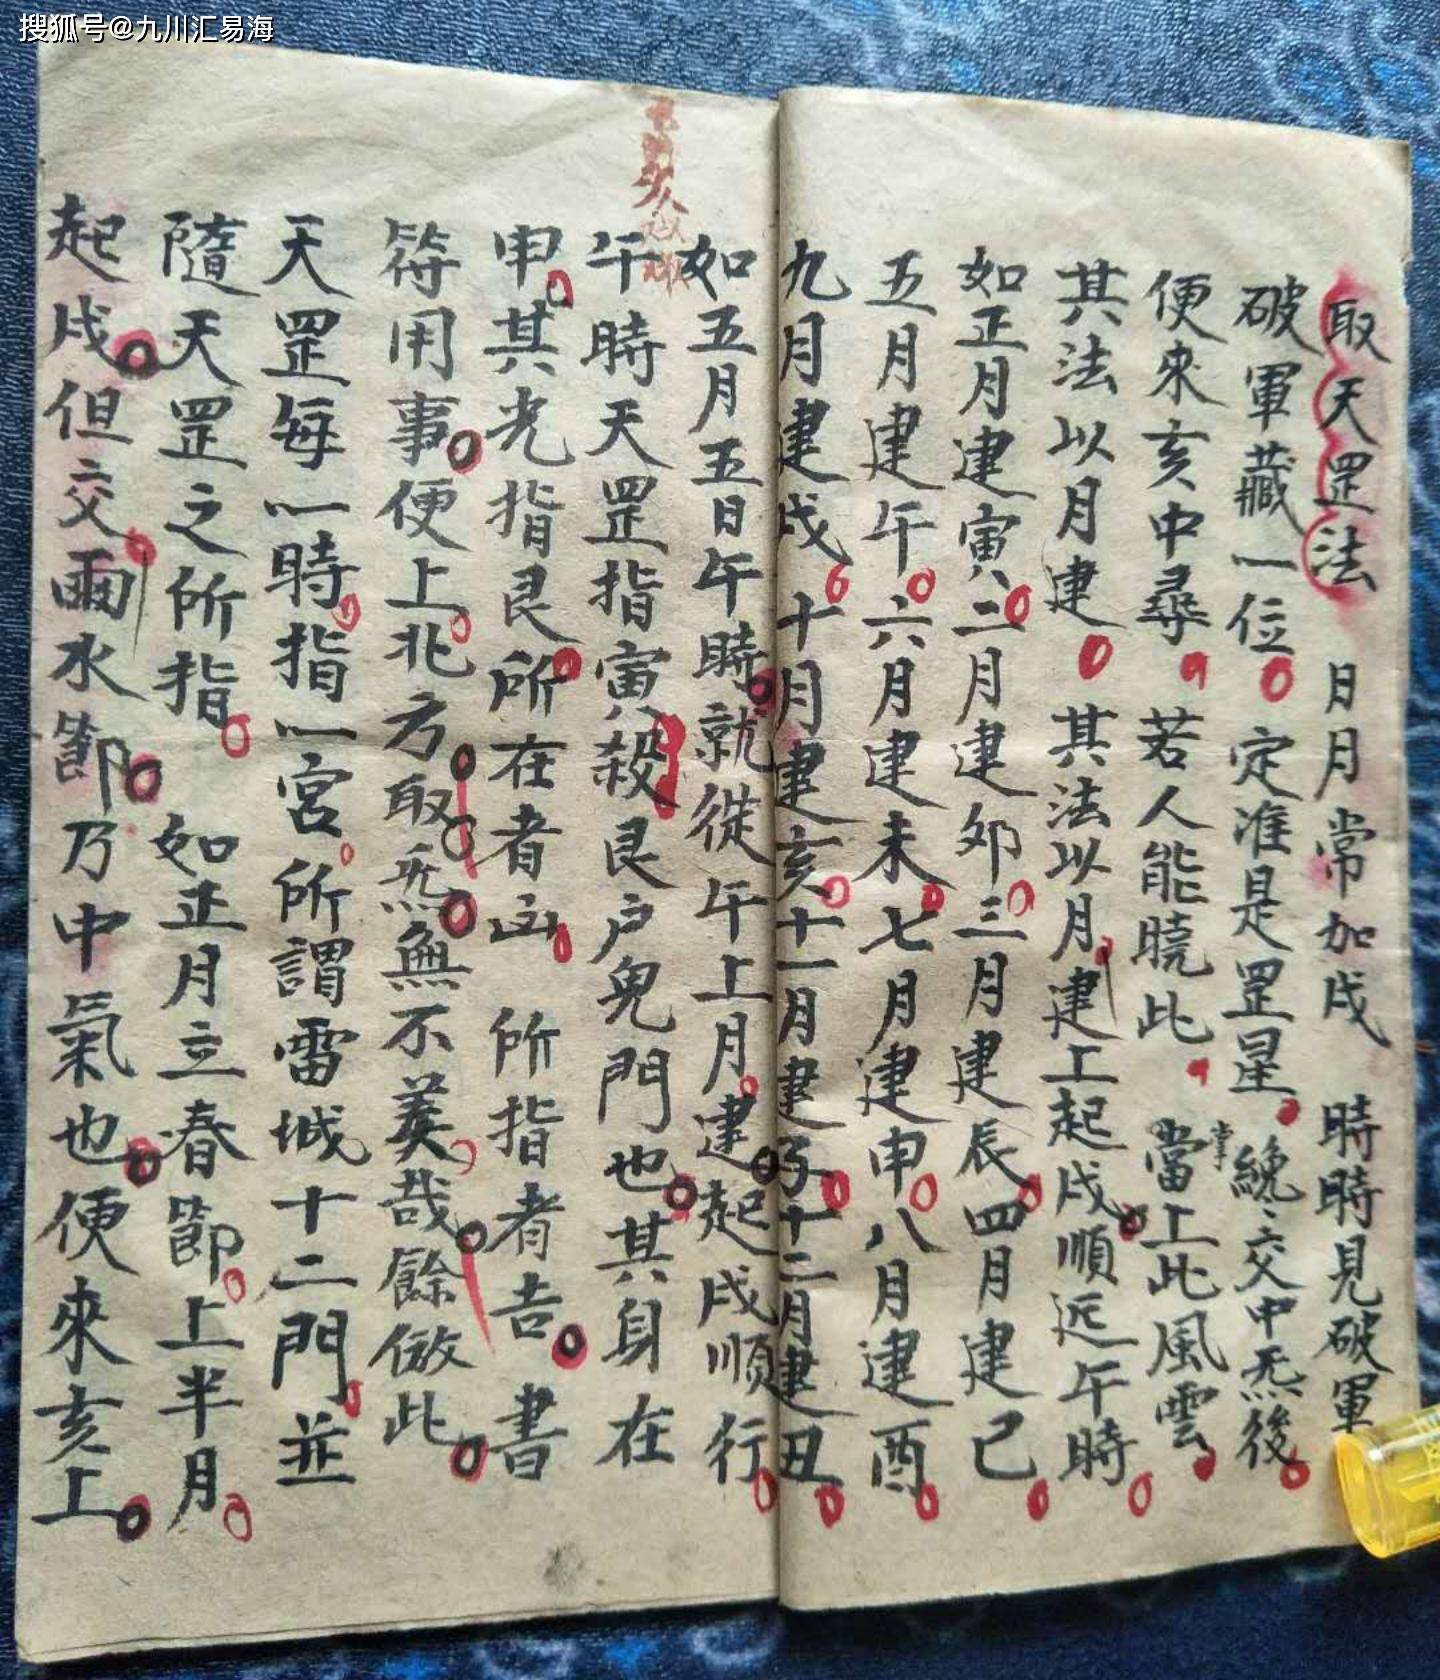 搜狐号@九川汇易海
取天罡法 月月常加戌 時時見破軍
破軍藏一位 定准是罡星 纔交中炁後
便來亥中尋 若人能曉此 當掌上此風雲
其法以月建 其法以月建上起戌順近午時
如正月建寅二月建卯三月建辰四月建己
五月建午六月建未七月建申八月建酉
九月建戌十月建亥十一月建子十二月建丑
如五月五日午時就從午上月建起戌順行
午時天罡指寅殺艮户鬼門也其身在
申其光指艮所在者凶 所指者吉 書
符用事便上北方取炁無不羙哉餘倣此
天罡每一時指一宮所謂雷城十二門並
隨天罡之所指 如正月立春節上半月
起戌但交雨水節乃中氣也便來亥上